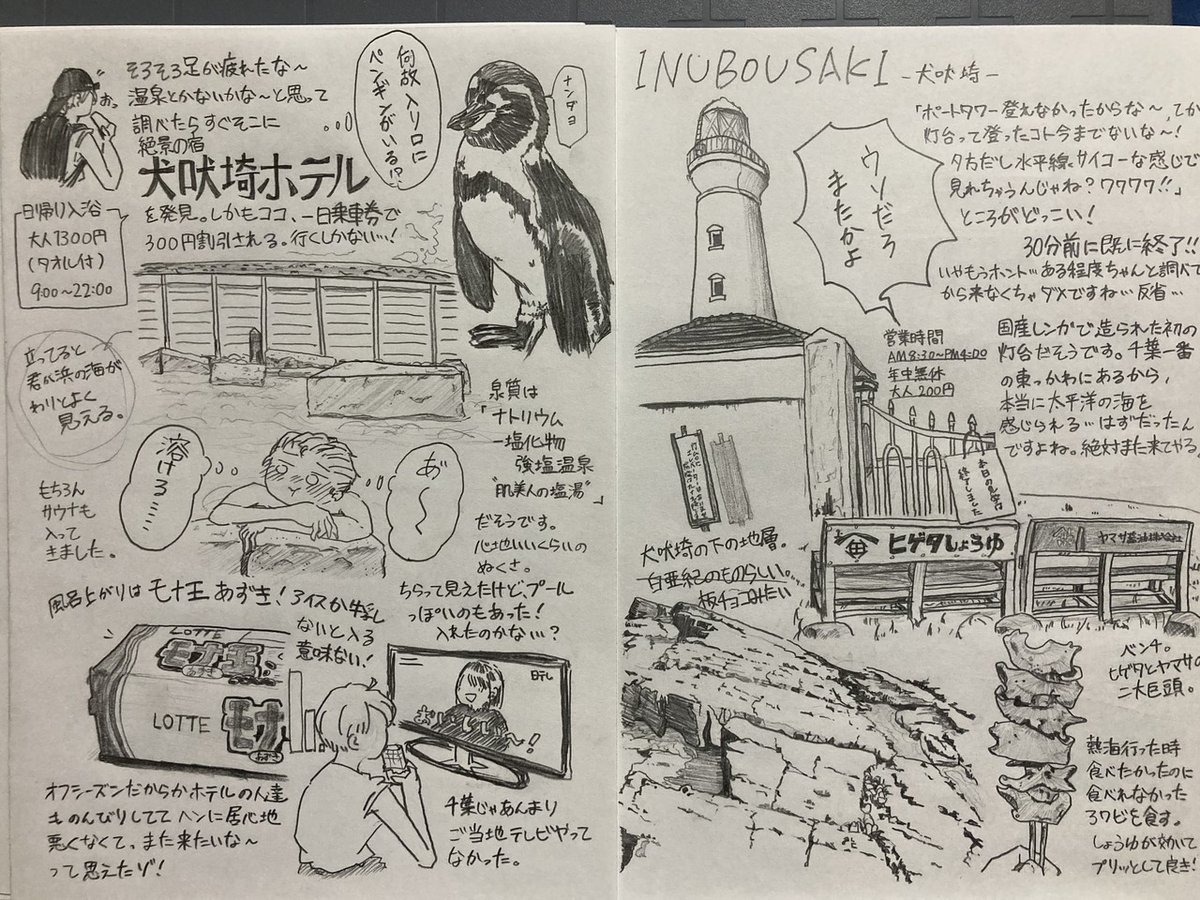 INUBOUSAKI -犬吠埼-
「ポートタワー登れなかったからな〜、てか
灯台って登ったコト今までないな〜!
夕方だし水平線、サイコーな感じで
見れちゃうんじゃね?ワクワク!!」
ところがどっこい!
30分前に既に終了!!
いやもうホント…ある程度ちゃんと調べて
から来なくちゃダメですね…反省…
ウソだろ
またかよ
営業時間
AM8:30~PM4:00
年中無休
大人200円
国産レンガで造られた初の
灯台だそうです。千葉一番
の東っかわにあるから、
本当に太平洋の海を
感じられる…はずだったん
ですよね。絶対また来てやる
本日の見学
終了しました
ヒゲタしょうゆ
ヤマサ醤油株式会社
ベンチ。
ヒゲタとヤマサの
二大巨頭。
犬吠埼の下の地層。
白亜紀のものらしい。
板チョコみたい
熱海行った時
食べたかったのに
食べれなかった
ヱワビを食す。
しょうゆが効いて
プリッとして良き!
そろそろ足が疲れたな〜
温泉とかないかな〜と思って
調べたらすぐそこに
絶景の宿
犬吠埼ホテル
を発見。しかもココ、一日乗車券で
300円割引される。行くしかない…!
お。
何故入り口に
ペンギンがいる!?
ナンダヨ
日帰り入浴
大人1300円
(タオル付)
9:00~22:00
立ってると
君が浜の海が
わりとよく
見える。
泉質は
「ナトリウム
-塩化物
強塩温泉
"肌美人の塩湯"」
だそうです。
心地いいくらいの
ぬくさ。
あ゛〜
溶ける……
もちろん
サウナも
入って
きました。
ちらって見えたけど、プール
っぽいのもあった!
入れたのかな…?
風呂上がりはモナ王あずき!アイスか牛乳
ないと入る
意味ない!
LOTTE
モナ王
LOTTE
モナ王
あずき
日テレ
千葉じゃあんまり
ご当地テレビやって
なかった。
オフシーズンだからかホテルの人達
ものんびりしててヘンに居心地
悪くなくて、また来たいな〜
って思えたゾ!